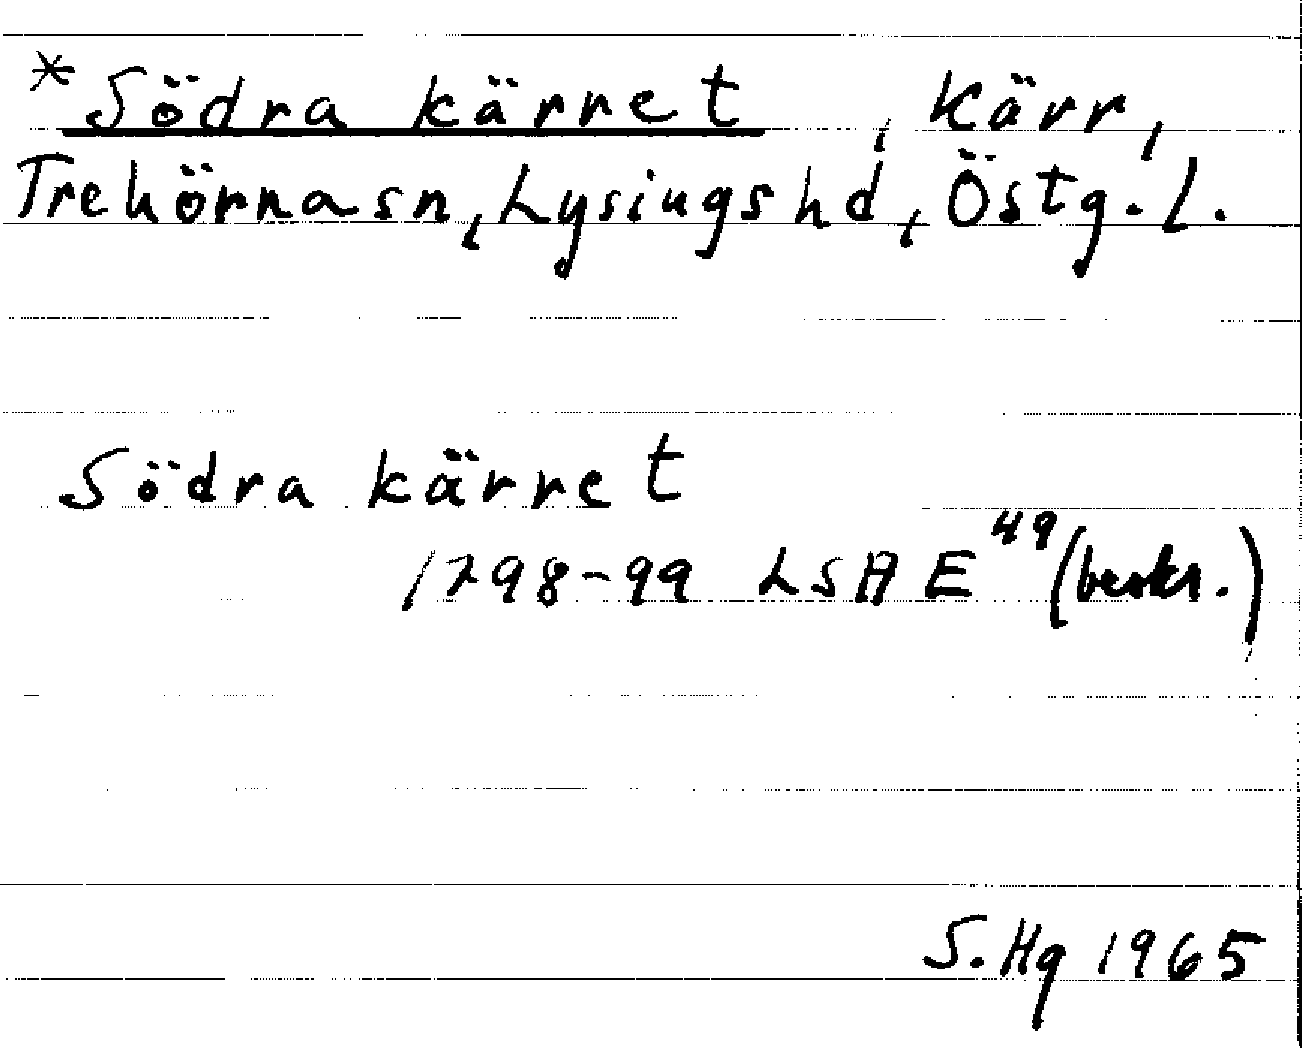 *Södra kärret, Kärr,
Trehörna sn, Lysings hd, Östg. l.
Södra kärret
1798-99 LSA E49 (beskr.)
S. Hg 1965